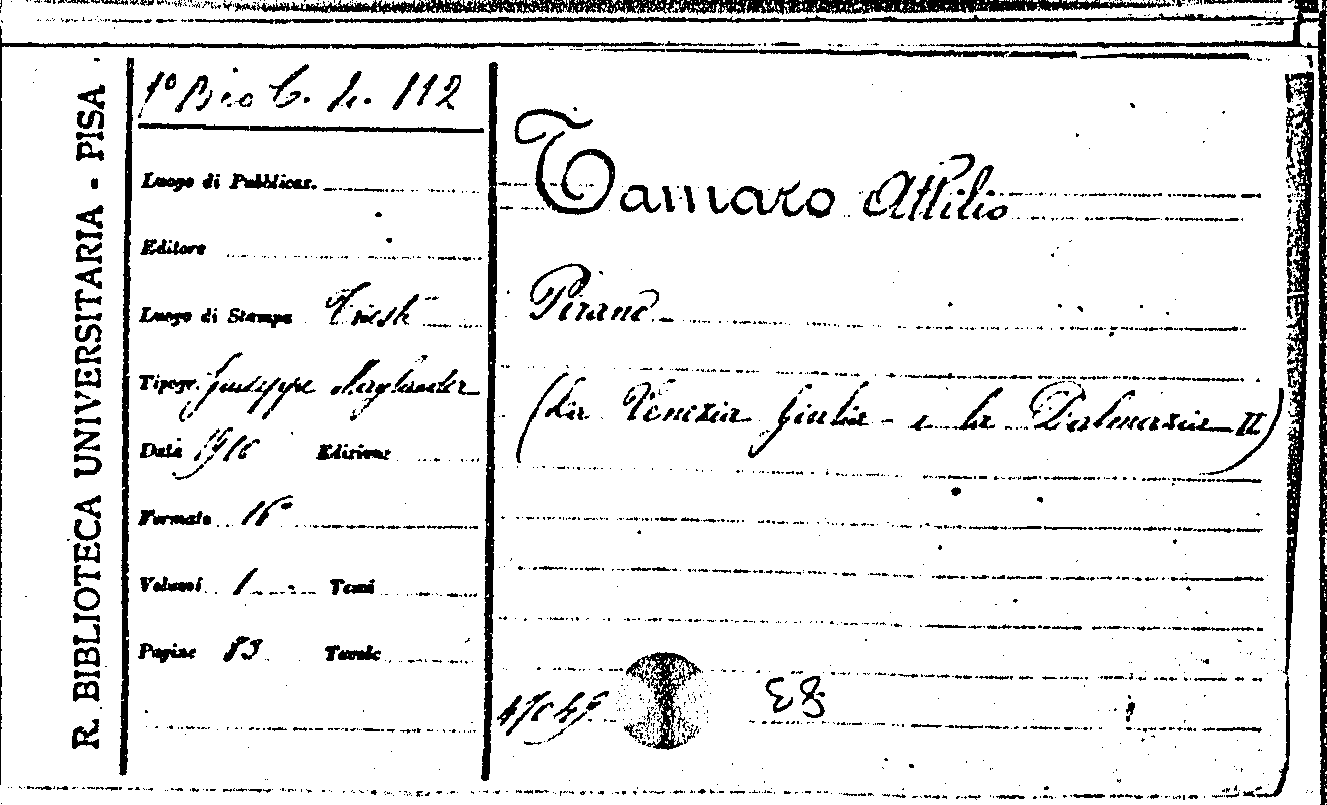 R. BIBLIOTECA UNIVERSITARIA - PISA
112
Luogo di Pubblicaz.
Editore
Luogo di Stampa Trieste
Tipogr. Giuseppe Maylander
Data 1910 Edizione
Formato 16°
Volumi 1 Tomi
Pagine 83 Tavole
Tamaro Attilio
Pirano
(La Venezia Giulia e la Dalmazia II)